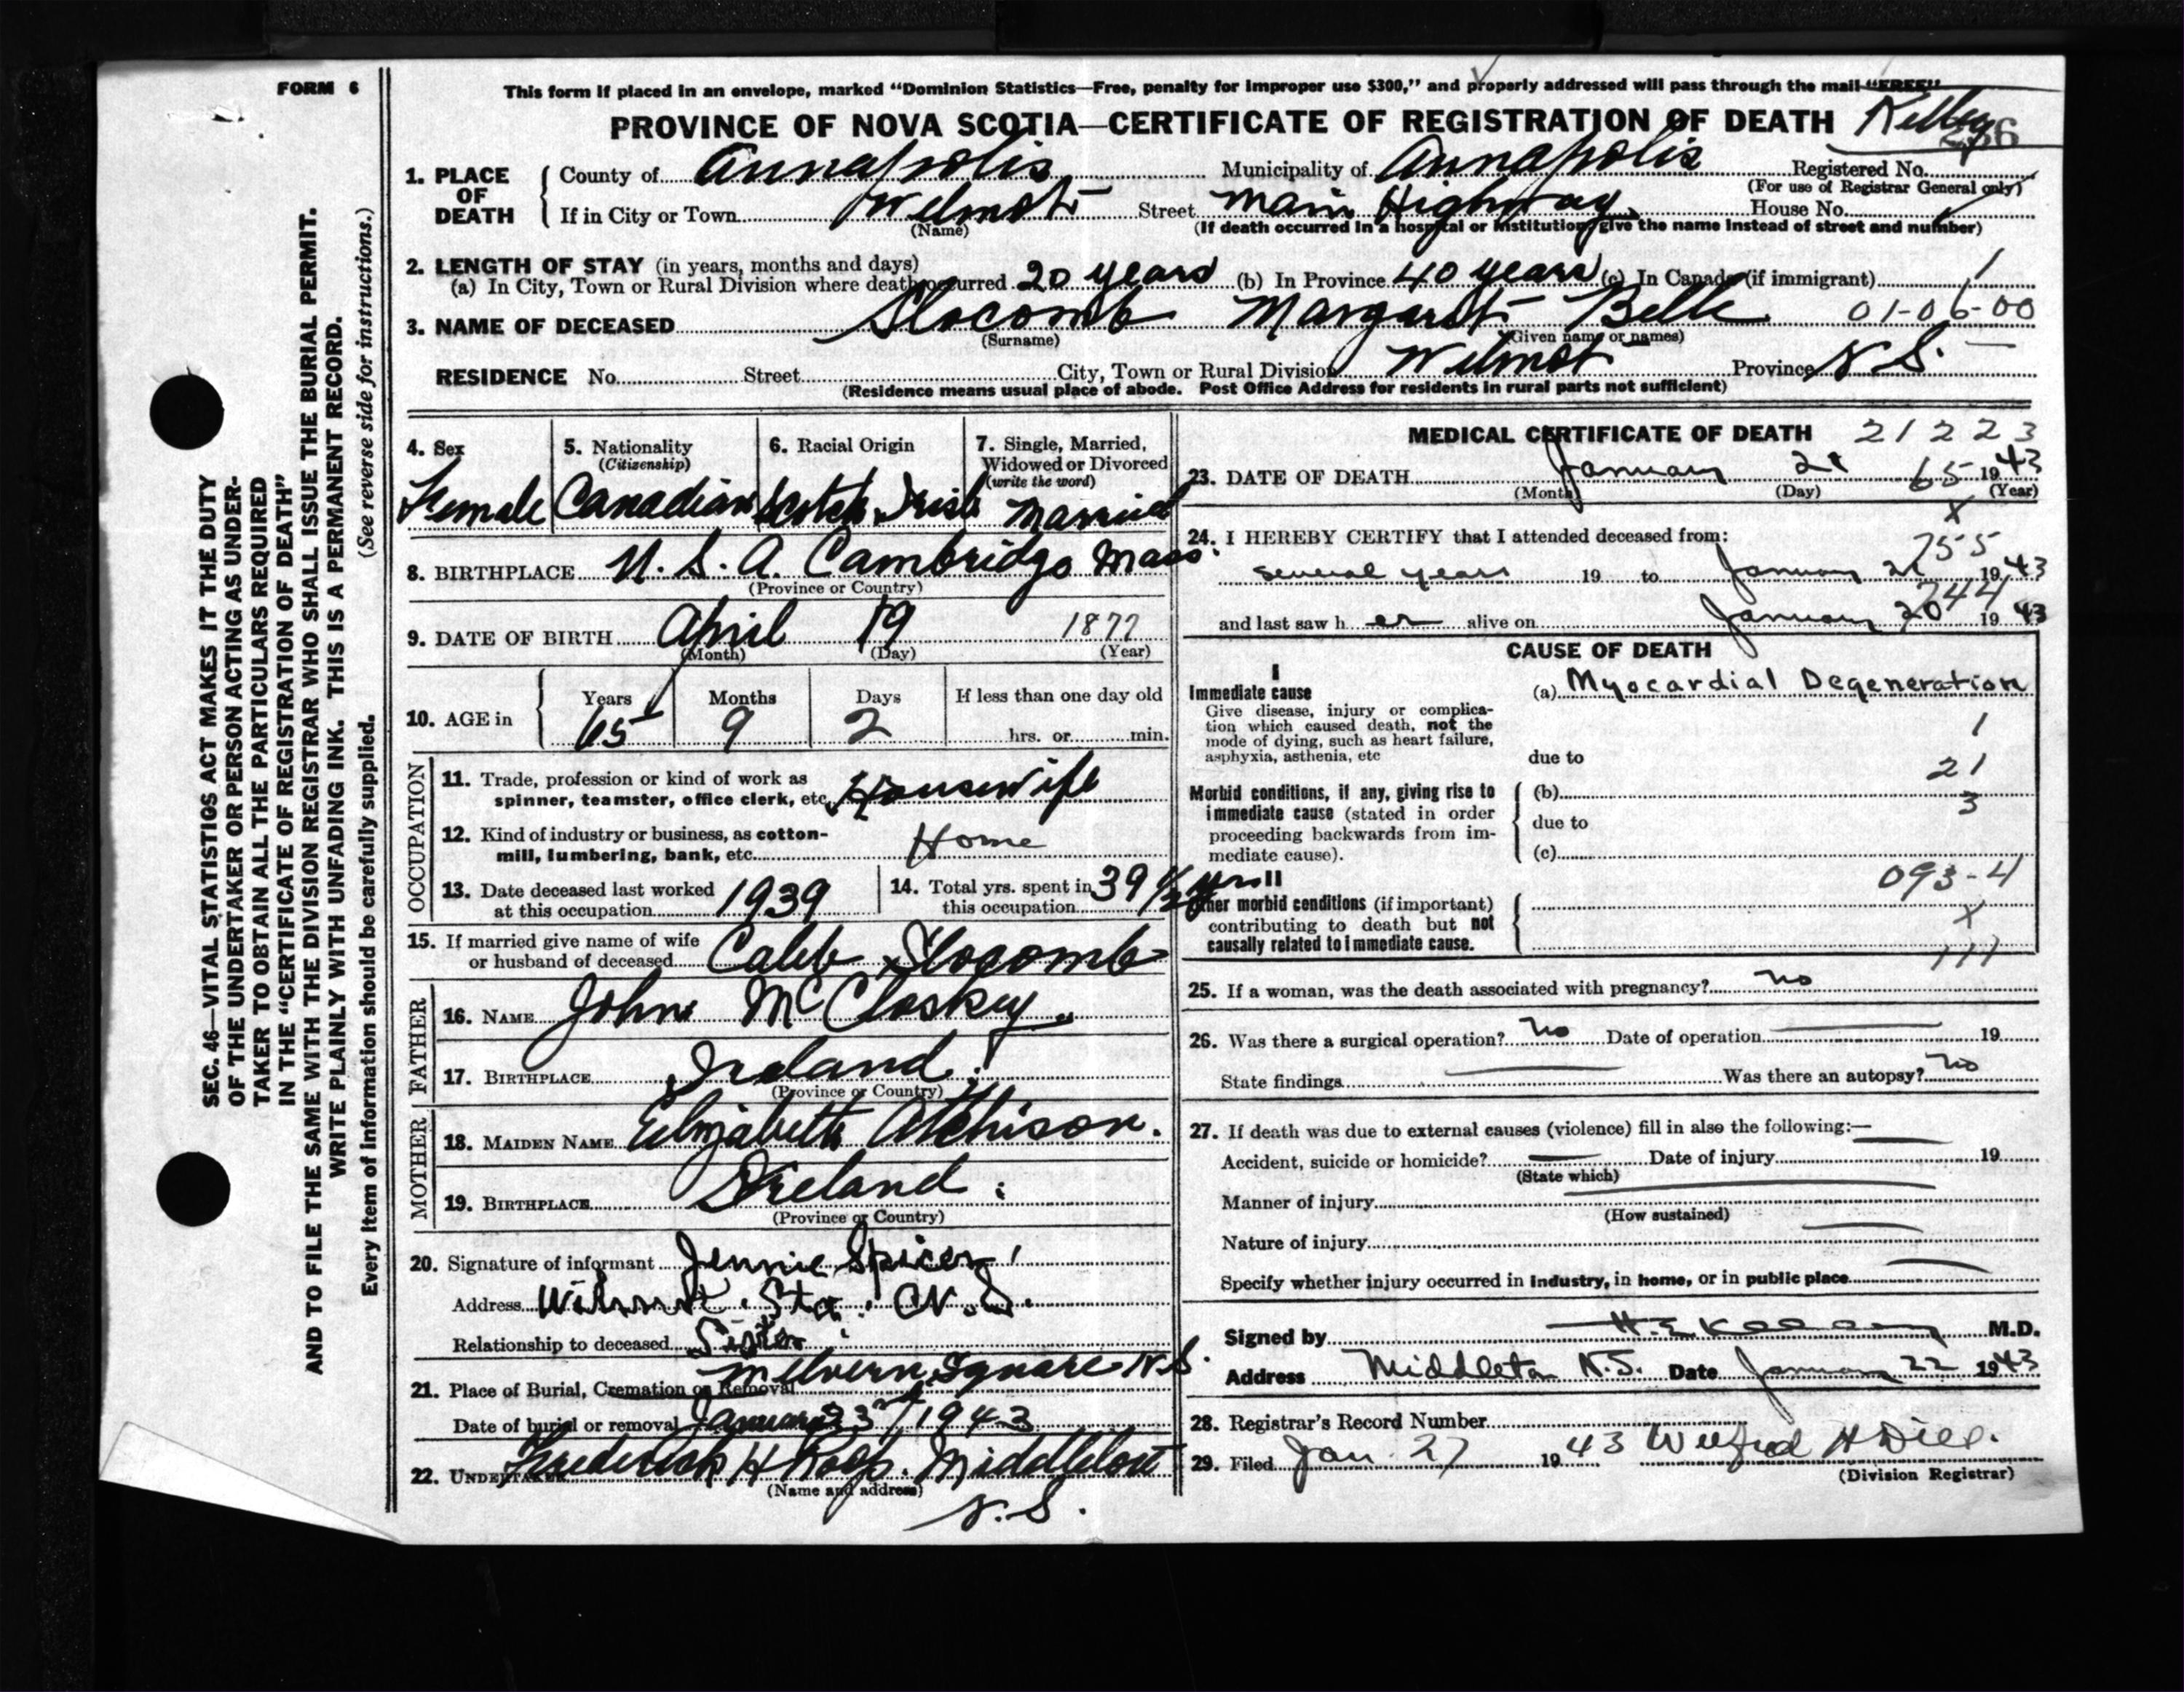 FORM 6
This form if placed in an envelope, marked "Dominion Statistics—Free, penalty for improper use $300," and properly addressed will pass through the mail "FREE"
PROVINCE OF NOVA SCOTIA—CERTIFICATE OF REGISTRATION OF DEATH Kelley 236
1. PLACE OF DEATH
County of Annapolis Municipality of Annapolis Registered No.
(For use of Registrar General only)
If in City or Town Wilmot Street Main Highway House No.
(Name) (If death occurred in a hospital or institution, give the name instead of street and number)
2. LENGTH OF STAY (in years, months and days)
(a) In City, Town or Rural Division where death occurred 20 years (b) In Province 40 years (c) In Canada (if immigrant) 1
3. NAME OF DECEASED Slocomb Margaret Belle 01-06-00
(Surname) (Given name or names)
RESIDENCE No. Street City, Town or Rural Division Wilmot Province N.S.
(Residence means usual place of abode. Post Office Address for residents in rural parts not sufficient)
4. Sex 5. Nationality (Citizenship) 6. Racial Origin 7. Single, Married, Widowed or Divorced (write the word)
Female Canadian Scotch Irish Married
8. BIRTHPLACE U. S. A. Cambridge Mass.
(Province or Country)
9. DATE OF BIRTH April 19 1877
(Month) (Day) (Year)
10. AGE in Years Months Days If less than one day old
65 9 2 hrs. or min.
OCCUPATION
11. Trade, profession or kind of work as spinner, teamster, office clerk, etc. Housewife
12. Kind of industry or business, as cotton-mill, lumbering, bank, etc. Home
13. Date deceased last worked at this occupation 1939
14. Total yrs. spent in this occupation 39 1/2 yrs
15. If married give name of wife or husband of deceased Caleb Slocomb
FATHER
16. NAME John McCloskey.
17. BIRTHPLACE Ireland.
(Province or Country)
MOTHER
18. MAIDEN NAME Elizabeth Atchison.
19. BIRTHPLACE Ireland.
(Province or Country)
20. Signature of informant Jennie Spicer
Address Wilmot. Sta. N.S.
Relationship to deceased Sister
21. Place of Burial, Cremation or Removal Melvern Square N.S.
Date of burial or removal January 23rd/1943
22. UNDERTAKER Frederick H Roop. Middleton
(Name and address) N.S.
MEDICAL CERTIFICATE OF DEATH 21223
23. DATE OF DEATH January 21 65 1943
(Month) (Day) (Year)
X
24. I HEREBY CERTIFY that I attended deceased from:
755
several years 19 to January 21 1943
744
and last saw her alive on January 20 1943
CAUSE OF DEATH
I
Immediate cause (a) Myocardial Degeneration
Give disease, injury or complication which caused death, not the mode of dying, such as heart failure, asphyxia, asthenia, etc
1
due to
21
Morbid conditions, if any, giving rise to immediate cause (stated in order proceeding backwards from immediate cause).
(b)
3
due to
(c)
093-4
II
Other morbid conditions (if important) contributing to death but not causally related to immediate cause.
X
111
25. If a woman, was the death associated with pregnancy? no
26. Was there a surgical operation? No Date of operation 19
State findings Was there an autopsy? no
27. If death was due to external causes (violence) fill in also the following:—
Accident, suicide or homicide? Date of injury 19
(State which)
Manner of injury
(How sustained)
Nature of injury
Specify whether injury occurred in industry, in home, or in public place
Signed by H.E. Kelley M.D.
Address Middleton N.S. Date January 22 1943
28. Registrar's Record Number
29. Filed Jan. 27 1943 Wilfred H Dill.
(Division Registrar)
SEC. 46—VITAL STATISTICS ACT MAKES IT THE DUTY
OF THE UNDERTAKER OR PERSON ACTING AS UNDER-
TAKER TO OBTAIN ALL THE PARTICULARS REQUIRED
IN THE "CERTIFICATE OF REGISTRATION OF DEATH"
AND TO FILE THE SAME WITH THE DIVISION REGISTRAR WHO SHALL ISSUE THE BURIAL PERMIT.
WRITE PLAINLY WITH UNFADING INK. THIS IS A PERMANENT RECORD.
Every item of information should be carefully supplied. (See reverse side for instructions.)